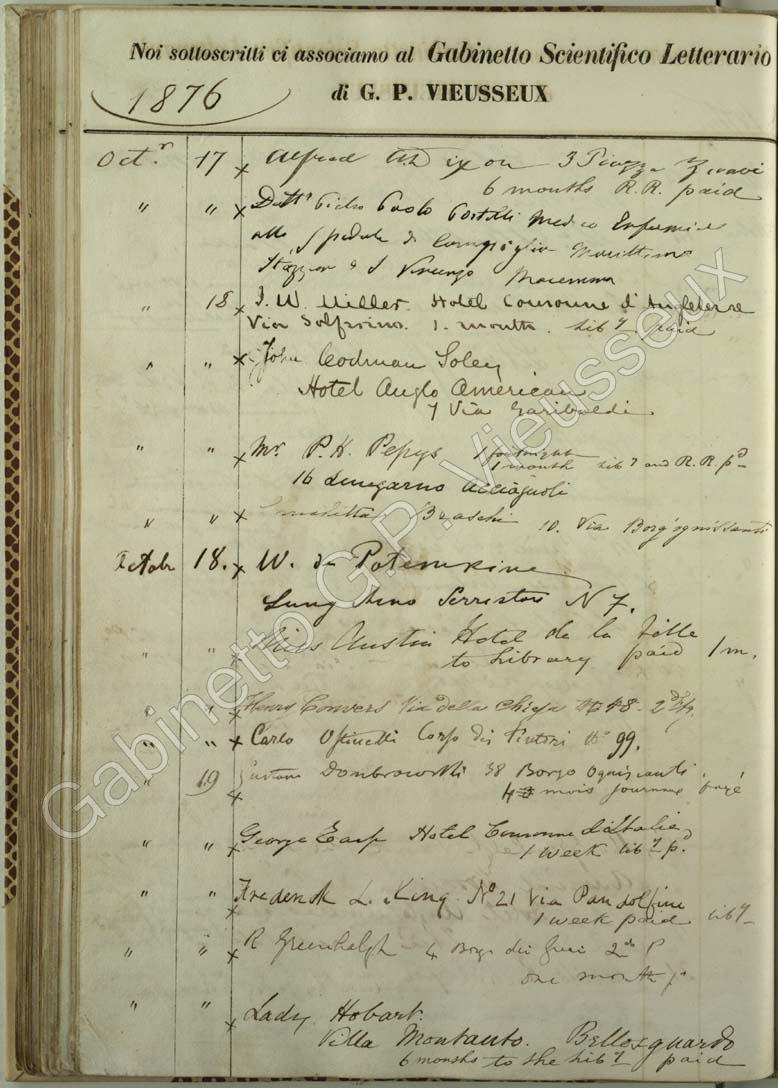 Noi sottoscritti ci associamo al Gabinetto Scientifico Letterario
di G. P. VIEUSSEUX
1876
Octr. 17 x Alfred A. Dixon 3 Piazza
6 months R.R. paid
" " x Dott. Pietro Paolo Medico
allo Spedale di Campiglia Marittima
S. Vincenzo Maremma
" 18 x J. W. Miller. Hotel Couronne d'Angleterre
Via Solferino. 1. month. liby paid
" " x John Codman Soley
Hotel Anglo American
7 Via Garibaldi
" " x Mr. P. H. Pepys 1 fortnight
1 month liby and R.R. pd
16 Lungarno Acciaguoli
" " x Braschi 10. Via Borg'ognissanti
Octobr 18. x W. de Potemkine
Lung Arno Serristori N 7.
" " x Miss Austin Hotel de la Ville
to Library paid 1 m.
" " x Henry Convers Via della Chiesa No 48 - 2d
" " x Carlo Corso dei Tintori No 99.
" 19 x Gustave Dombrowski 38 Borgo Ognissanti
4 mois journaux payé
" " x George Earp Hotel Couronne d'Italie
1 week liby p.
" " x Frederick L. King No 21 Via Pandolfini
1 week paid liby
" " x R Greenhalgh 4 Borgo dei Greci 2do P
one month p
" " x Lady Hobart.
Villa Montauto. Bellosguardo
6 months to the liby paid
Gabinetto G.P. Vieusseux